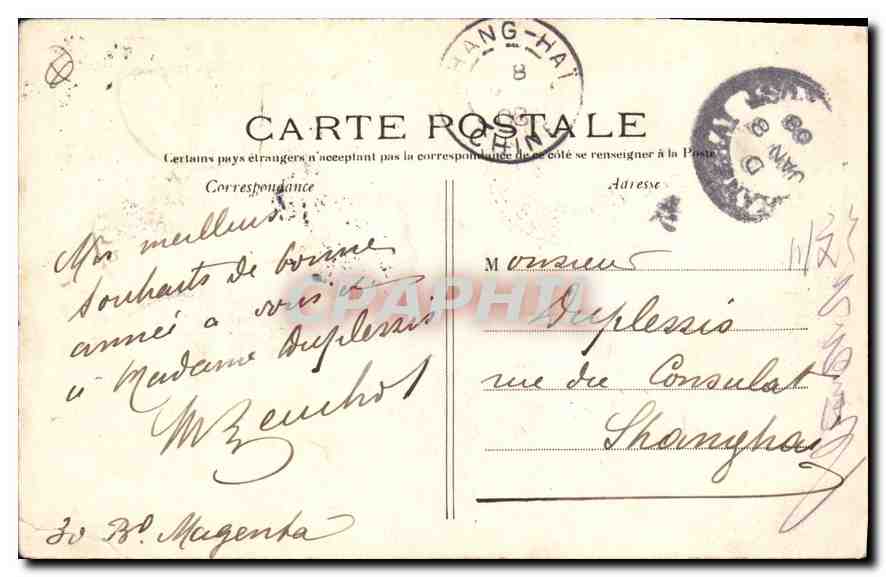 CARTE POSTALE
Certains pays étrangers n'acceptant pas la correspondance de ce côté se renseigner à la Poste
Correspondance
Adresse
SHANG-HAÏ
8
CHINE
SHANGHAI
D
8
JAN
09
Mes meilleurs
souhaits de bonne
année à vous et
à Madame Duplessis
30 Bd. Magenta
Monsieur
Duplessis
rue du Consulat
Shanghai
CPAPHIL